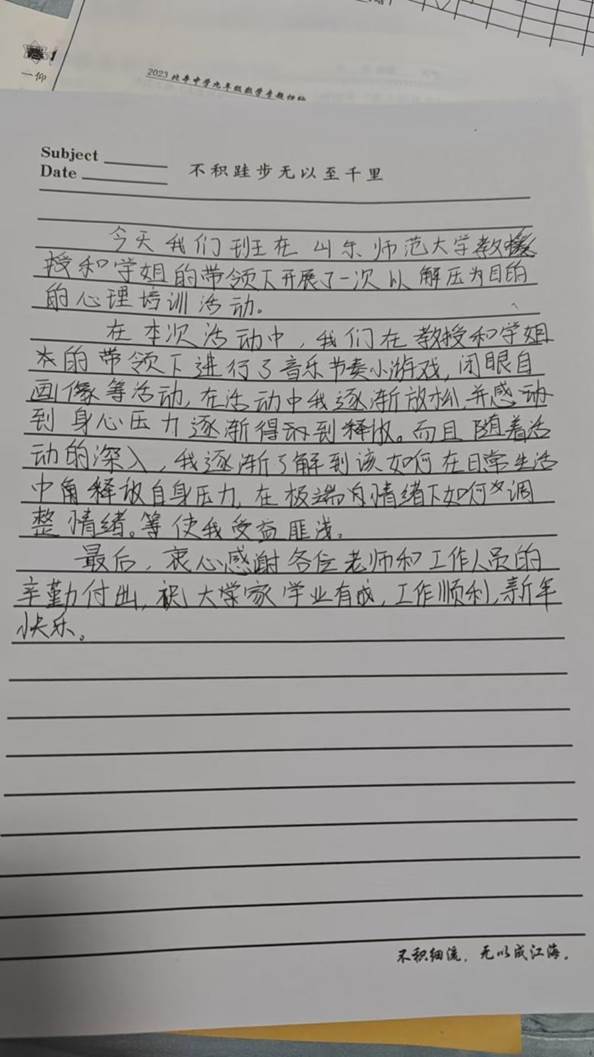 一仰
2023 北季中学九年级数学专题
Subject
Date
不积跬步无以至千里
今天我们班在山东师范大学教
授和学姐的带领下开展了一次以解压为目的
的心理培训活动。
在本次活动中，我们在教授和学姐
的带领下进行了音乐节奏小游戏，闭眼自
画像等活动，在活动中我逐渐放松，并感动
到身心压力逐渐得到释放。而且随着活
动的深入，我逐渐了解到该如何在日常生活
中释放自身压力，在极端情绪下如何调
整情绪。等使我受益匪浅。
最后，衷心感谢各位老师和工作人员的
辛勤付出，祝大家学业有成，工作顺利，新年
快乐。
不积细流，无以成江海。